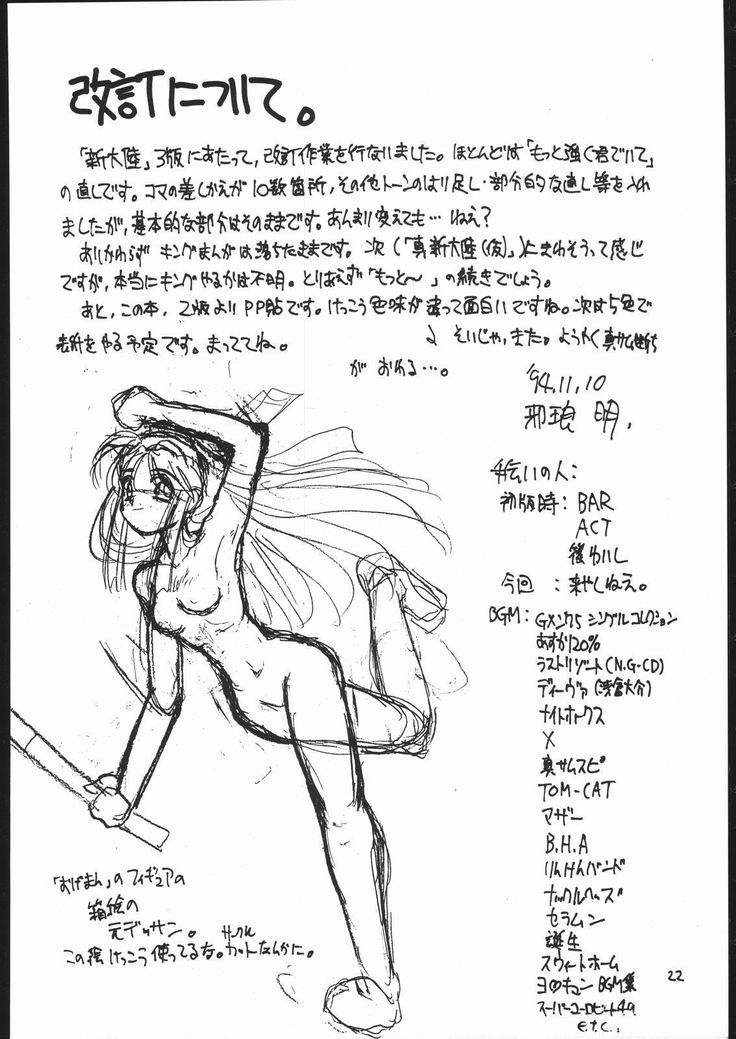 改訂について。
「新大陸」3版にあたって,改訂作業を行ないました。ほとんどは「もっと強く君でいて」
の直しです。コマの差しかえが10数箇所,その他トーンのはり足し・部分的な直し等を入れ
ましたが,基本的な部分はそのままです。あんまり変えても…ねえ?
あいかわらずキングまんがは落ちたままです。次(「真新大陸(仮)」)にまわそうって感じ
ですが,本当にキングやるかは不明。とりあえず「もっと〜」の続きでしょう。
あと,この本,2版よりPP貼です。けっこう色味が違って面白いですね。次は5色で
表紙をやる予定です。まっててね。
そいじゃ,また。ようやく真サム断ち
がおわる…。
'94.11.10
邪琅 明.
手伝いの人:
初版時:BAR
ACT
後わいし
今回:来やしねえ。
BGM:
シングルコレクション
あすか120%
ラストリゾート(N.G-CD)
ディーヴァ(浅倉大介)
ナイトホークス
X
真サムスピ
TOM-CAT
マザー
B.H.A
りんけんバンド
ナックルヘッズ
セラムン
誕生
スウィートホーム
BGM集
スーパーユーロビート49
e.t.c..
「あげまん」のフィギュアの
箱絵の
元デッサン。
サークル
この絵けっこう使ってるな。カットなんかに。
22